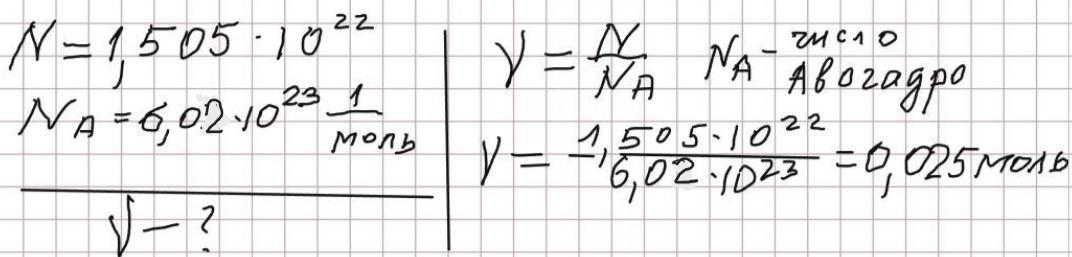 N = 1,505 · 10²²
N_A = 6,02 · 10²³ 1/моль
ν — ?
ν = N/N_A N_A - число Авогадро
ν = 1,505 · 10²² / 6,02 · 10²³ = 0,025 моль